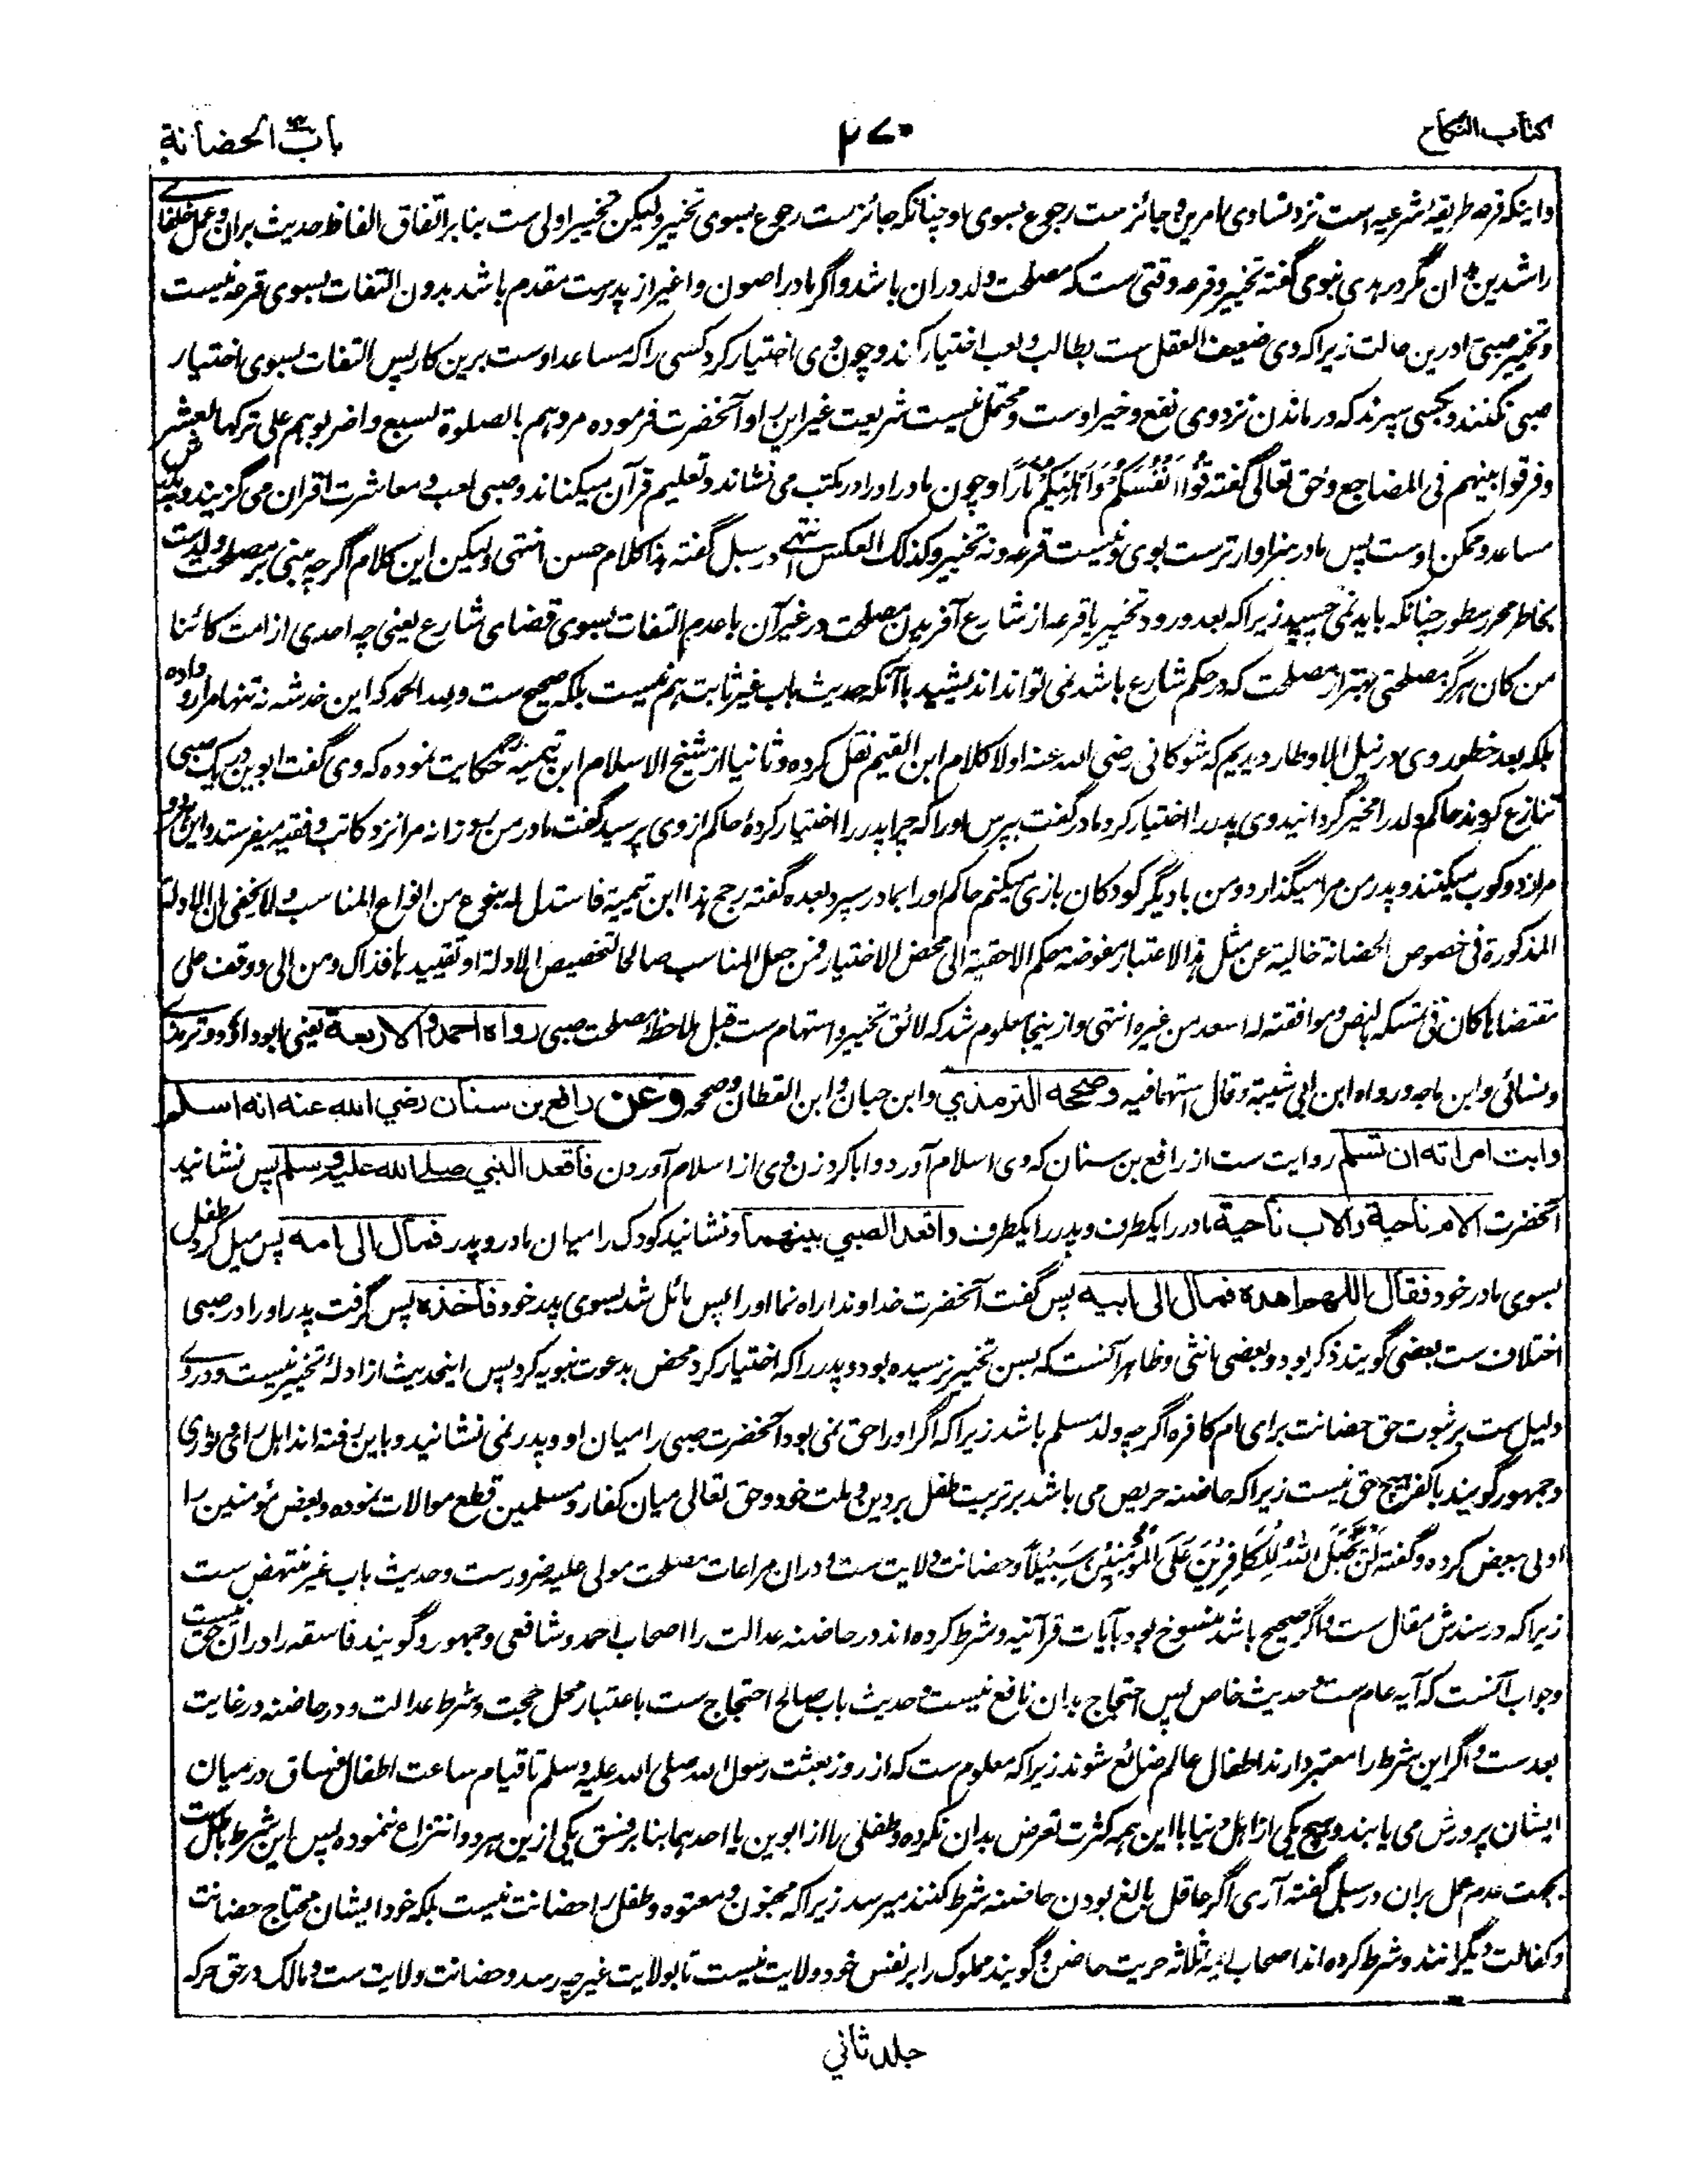 کتاب النکاح
۲۷۰
باب الحضانة
و اینکه قرعه طریقهٔ شرعیه است نزد تساوی امرین و جائزست رجوع بسوی او چنانکه جائزست رجوع بسوی تخییر و لیکن تخییر اولی ست بنا بر اتفاق الفاظ حدیث بران و عمل خلفای
راشدین بدان مگر در هدی نبوی گفته تخییر و قرعه وقتی ست که مصلحت ولد دران باشد و اگر مادر اصون و اغیر از پدرست مقدم باشد بدون التفات بسوی قرعه نیست
و تخییر صبی درین حالت زیراکه وی ضعیف العقل ست بطالب و لعب اختیار کند و چون وی اختیار کرد کسی را که مساعد اوست برین کار پس التفات بسوی اختیار
صبی نکنند و بکسی سپرند که در ماندن نزد وی نفع و خیر اوست و محتمل نیست شریعت غیر این را و آنحضرت فرموده مروهم بالصلوة لسبع و اضربوهم علی ترکها لعشر
و فرقوا بینهم فی المضاجع و حق تعالی گفته قُوا أَنفُسَكُمْ وَأَهْلِيكُمْ نَارًا و چون مادر او را در مکتب می نشاند و تعلیم قرآن میکناند و صبی لعب و معاشرت اقران می گزیند و پدرش
مساعد و ممکن اوست پس مادر سزاوارترست بوی و نیست قرعه و نه تخییر و کذلک العکس انتهی در سبل گفته هذا کلام حسن انتهی و لیکن این کلام اگرچه مبنی بر مصلحت ولدست
بخاطر محرر سطور چنانکه باید نمی چسپد زیراکه بعد ورود تخییر یا قرعه از شارع آفریدن مصلحت در غیر آن با عدم التفات بسوی قضای شارع یعنی چه احدی از امت کائنا
من کان هرگز مصلحتی بهتر از مصلحت که در حکم شارع باشد نمی تواند اندیشید با آنکه حدیث باب غیر ثابت هم نیست بلکه صحیح ست و لله الحمد که این خدشه نه تنها مرا رو داده
بلکه بعد خطور وی در نیل الاوطار دیدیم که شوکانی رضی الله عنه اولا کلام ابن القیم نقل کرده و ثانیا از شیخ الاسلام ابن تیمیه رح حکایت نموده که وی گفت ابوین در یک صبی
تنازع کردند حاکم ولد را مخیر گردانید وی پدر را اختیار کرد مادر گفت بپرس او را که چرا پدر را اختیار کردهٔ حاکم از وی پرسید گفت مادر من روزانه مرا نزد کاتب و فقیه میفرستد و این هر دو
مرا زد و کوب میکنند و پدر من مرا میگذارد و من با دیگر کودکان بازی میکنم حاکم او را بمادر سپرد بعده گفته رجح هذا ابن تیمیة فاستدل له بنوع من انواع المناسب و لا یخفی ان الادلة
المذکورة فی خصوص الحضانة خالیة عن مثل هذا الاعتبار مفوضة حکم الاحقیة الی محض الاختیار فمن جعل المناسب صالحا لتخصیص الادلة او تقییدها فذاک و من الی و وقف علی
مقتضاها کان فی تمسکه بالنص و موافقته له اسعد من غیره انتهی و ازینجا معلوم شد که لائق تخییر و استهام ست قبل ملاحظهٔ مصلحت صبی رواه احمد والاربعة یعنی ابوداؤد و ترمذی
و نسائی و ابن ماجه و رواه ابن ابی شیبة و قال استهما فیه وصححه الترمذي و ابن حبان و ابن القطان و صححه وعن رافع بن سنان رضي الله عنه انه اسلم
وابت امراته ان تسلم روایت ست از رافع بن سنان که وی اسلام آورد و ابا کرد زن وی از اسلام آوردن فاقعد النبي صلى الله عليه وسلم پس نشانید
آنحضرت الام ناحية والاب ناحية مادر را یکطرف و پدر را یکطرف واقعد الصبي بينهما و نشانید کودک را میان مادر و پدر فمال الى امه پس میل کرد طفل
بسوی مادر خود فقال اللهم اهده فمال الى ابيه پس گفت آنحضرت خداوندا راه نما او را پس مائل شد بسوی پدر خود فاخذه پس گرفت پدر او را در صبی
اختلاف ست بعضی گویند ذکر بود و بعضی انثی و ظاهر آنست که بسن تخییر نرسیده بود و پدر را که اختیار کرد محض بدعوت نبویه کرد پس اینحدیث از ادلهٔ تخییر نیست و در وی
دلیل ست بر ثبوت حق حضانت برای ام کافره اگرچه ولد مسلم باشد زیراکه اگر او را حق نمی بود آنحضرت صبی را میان او و پدر نمی نشانید و باین رفته اند اهل رای و ثوری
و جمهور گویند با کفر هیچ حق نیست زیراکه حاضنه حریص می باشد بر تربیت طفل بر دین و ملت خود و حق تعالی میان کفار و مسلمین قطع موالات نموده و بعض مؤمنین را
اولی ببعض کرده و گفته لَنْ يَجْعَلَ اللهُ لِلْكَافِرِينَ عَلَى الْمُؤْمِنِينَ سَبِيلًا و حضانت ولایت ست و دران مراعات مصلحت مولی علیه ضرورست و حدیث باب غیر منتهض ست
زیراکه در سندش مقال ست و اگر صحیح باشد منسوخ بود بآیات قرآنیه و شرط کرده اند در حاضنه عدالت را اصحاب احمد و شافعی و جمهور و گویند فاسقه را دران حق نیست
و جواب آنست که آیه عام ست و حدیث خاص پس احتجاج بدان نافع نیست و حدیث باب صالح احتجاج ست باعتبار محل حجت و شرط عدالت و در حاضنه در غایت
بعدست و اگر این شرط را معتبر دارند اطفال عالم ضائع شوند زیراکه معلوم ست که از روز بعثت رسول الله صلی الله علیه وسلم تا قیام ساعت اطفال فساق در میان
ایشان پرورش می یابند و هیچ یکی از اهل دنیا با این همه کثرت تعرض بدان نکرده و طفلی را از ابوین یا احدهما بنا بر فسق یکی ازین هر دو انتزاع ننموده پس این شرط باطل ست
بجهت عدم عمل بران در سبل گفته آری اگر عاقل بالغ بودن حاضنه شرط کنند میرسد زیراکه مجنون و معتوه و طفل را حضانت نیست بلکه خود ایشان محتاج حضانت
و کفالت دیگرانند و شرط کرده اند اصحاب ائمهٔ ثلاثه حریت حاضن و گویند مملوک را بر نفس خود ولایت نیست تا بولایت غیر چه رسد و حضانت ولایت ست و مالک در حق حره که
جلد ثاني